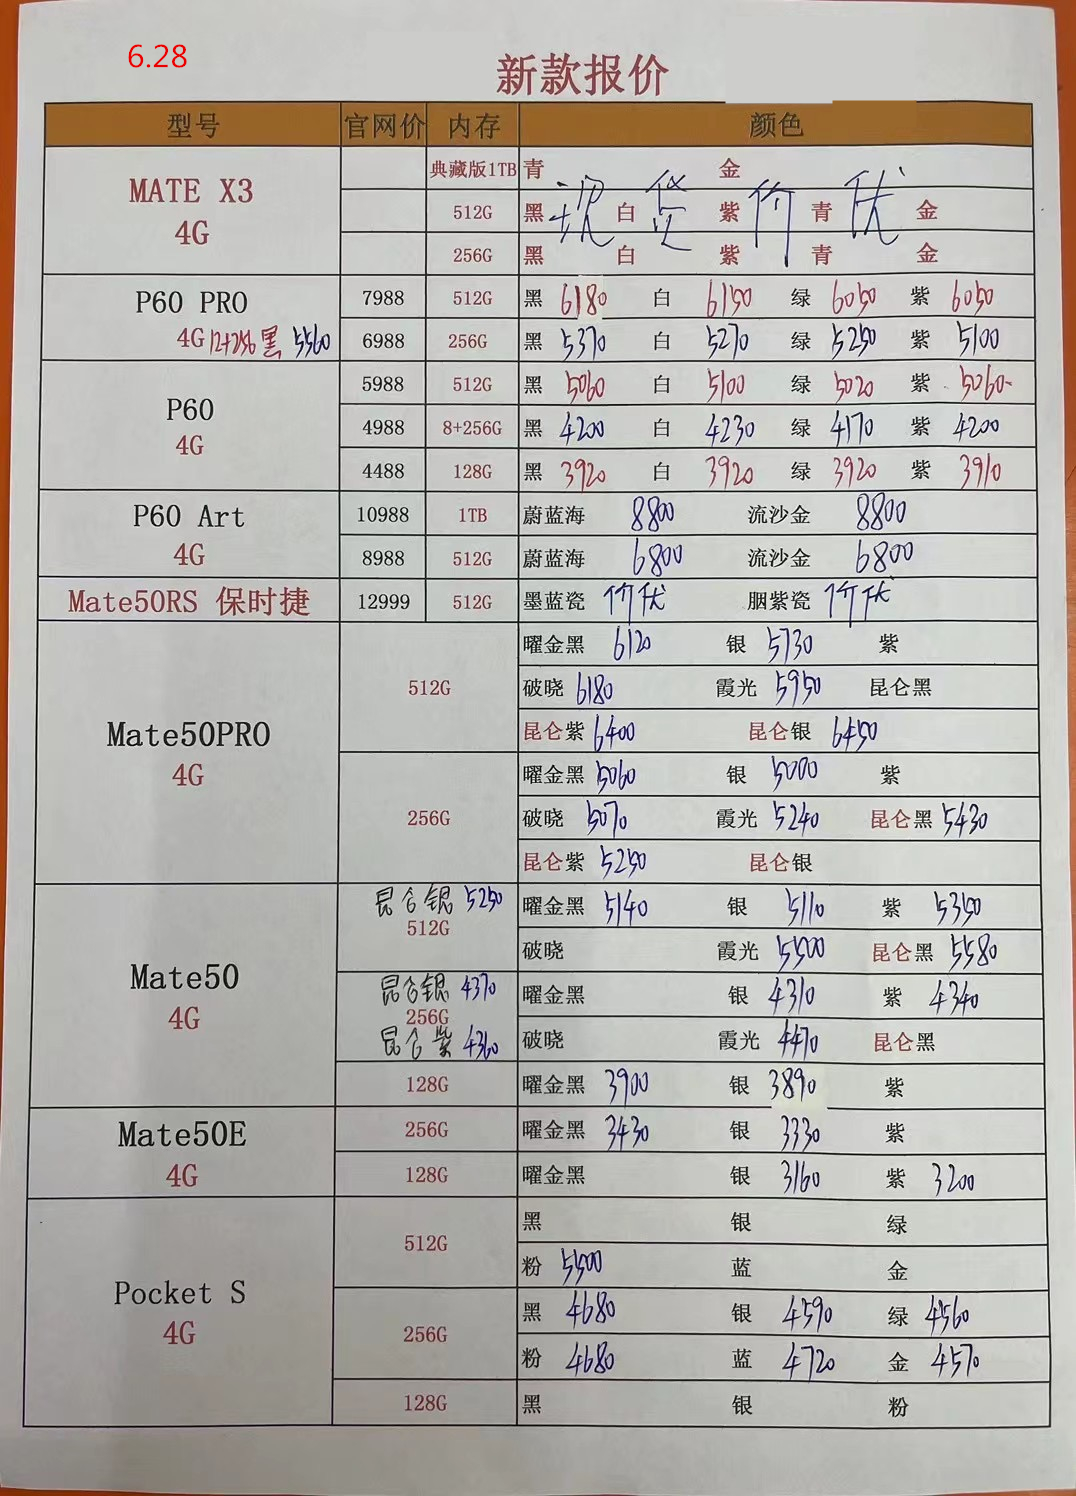 6.28
新款报价
型号 官网价 内存 颜色
MATE X3 4G
典藏版1TB 青 金
512G 黑 白 紫 青 金
现货价优
256G 黑 白 紫 青 金
P60 PRO
7988 512G 黑 6180 白 6150 绿 6050 紫 6050
4G 12+256 黑 5560
6988 256G 黑 5370 白 5270 绿 5250 紫 5100
P60
4G
5988 512G 黑 5060 白 5100 绿 5020 紫 5060-
4988 8+256G 黑 4200 白 4230 绿 4170 紫 4200
4488 128G 黑 3920 白 3920 绿 3920 紫 3910
P60 Art
4G
10988 1TB 蔚蓝海 8800 流沙金 8800
8988 512G 蔚蓝海 6800 流沙金 6800
Mate50RS 保时捷 12999 512G 墨蓝瓷 价优 胭紫瓷 价优
Mate50PRO
4G
512G
曜金黑 6120 银 5730 紫
破晓 6180 霞光 5950 昆仑黑
昆仑紫 6400 昆仑银 6450
256G
曜金黑 5060 银 5000 紫
破晓 5070 霞光 5240 昆仑黑 5430
昆仑紫 5250 昆仑银
Mate50
4G
昆仑银 5250
512G
曜金黑 5140 银 5110 紫 5350
破晓 霞光 5500 昆仑黑 5580
昆仑银 4370
256G
昆仑紫 4360
曜金黑 银 4310 紫 4340
破晓 霞光 4470 昆仑黑
128G 曜金黑 3900 银 3890 紫
Mate50E
4G
256G 曜金黑 3430 银 3330 紫
128G 曜金黑 银 3160 紫 3200
Pocket S
4G
512G
黑 银 绿
粉 5500 蓝 金
256G
黑 4680 银 4590 绿 4560
粉 4680 蓝 4720 金 4570
128G 黑 银 粉